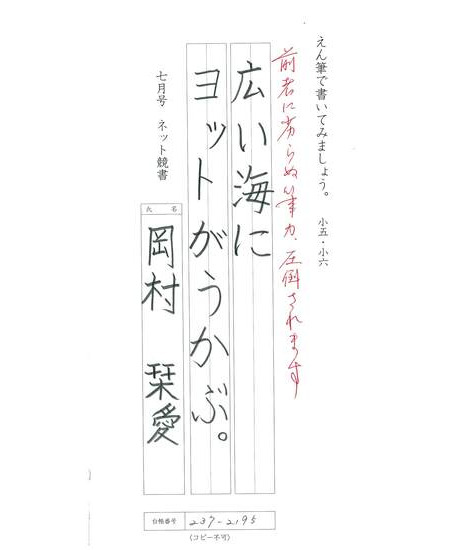 えん筆で書いてみましょう。 小五・小六
前者に劣らぬ筆力、圧倒されます
広い海に
ヨットがうかぶ。
七月号 ネット競書
氏名
岡村 栞愛
台帳番号 237-2195
(コピー不可)